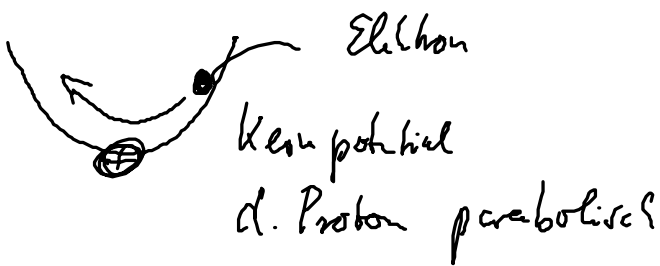 Elektron
Kernpotential
d. Proton parabolisch